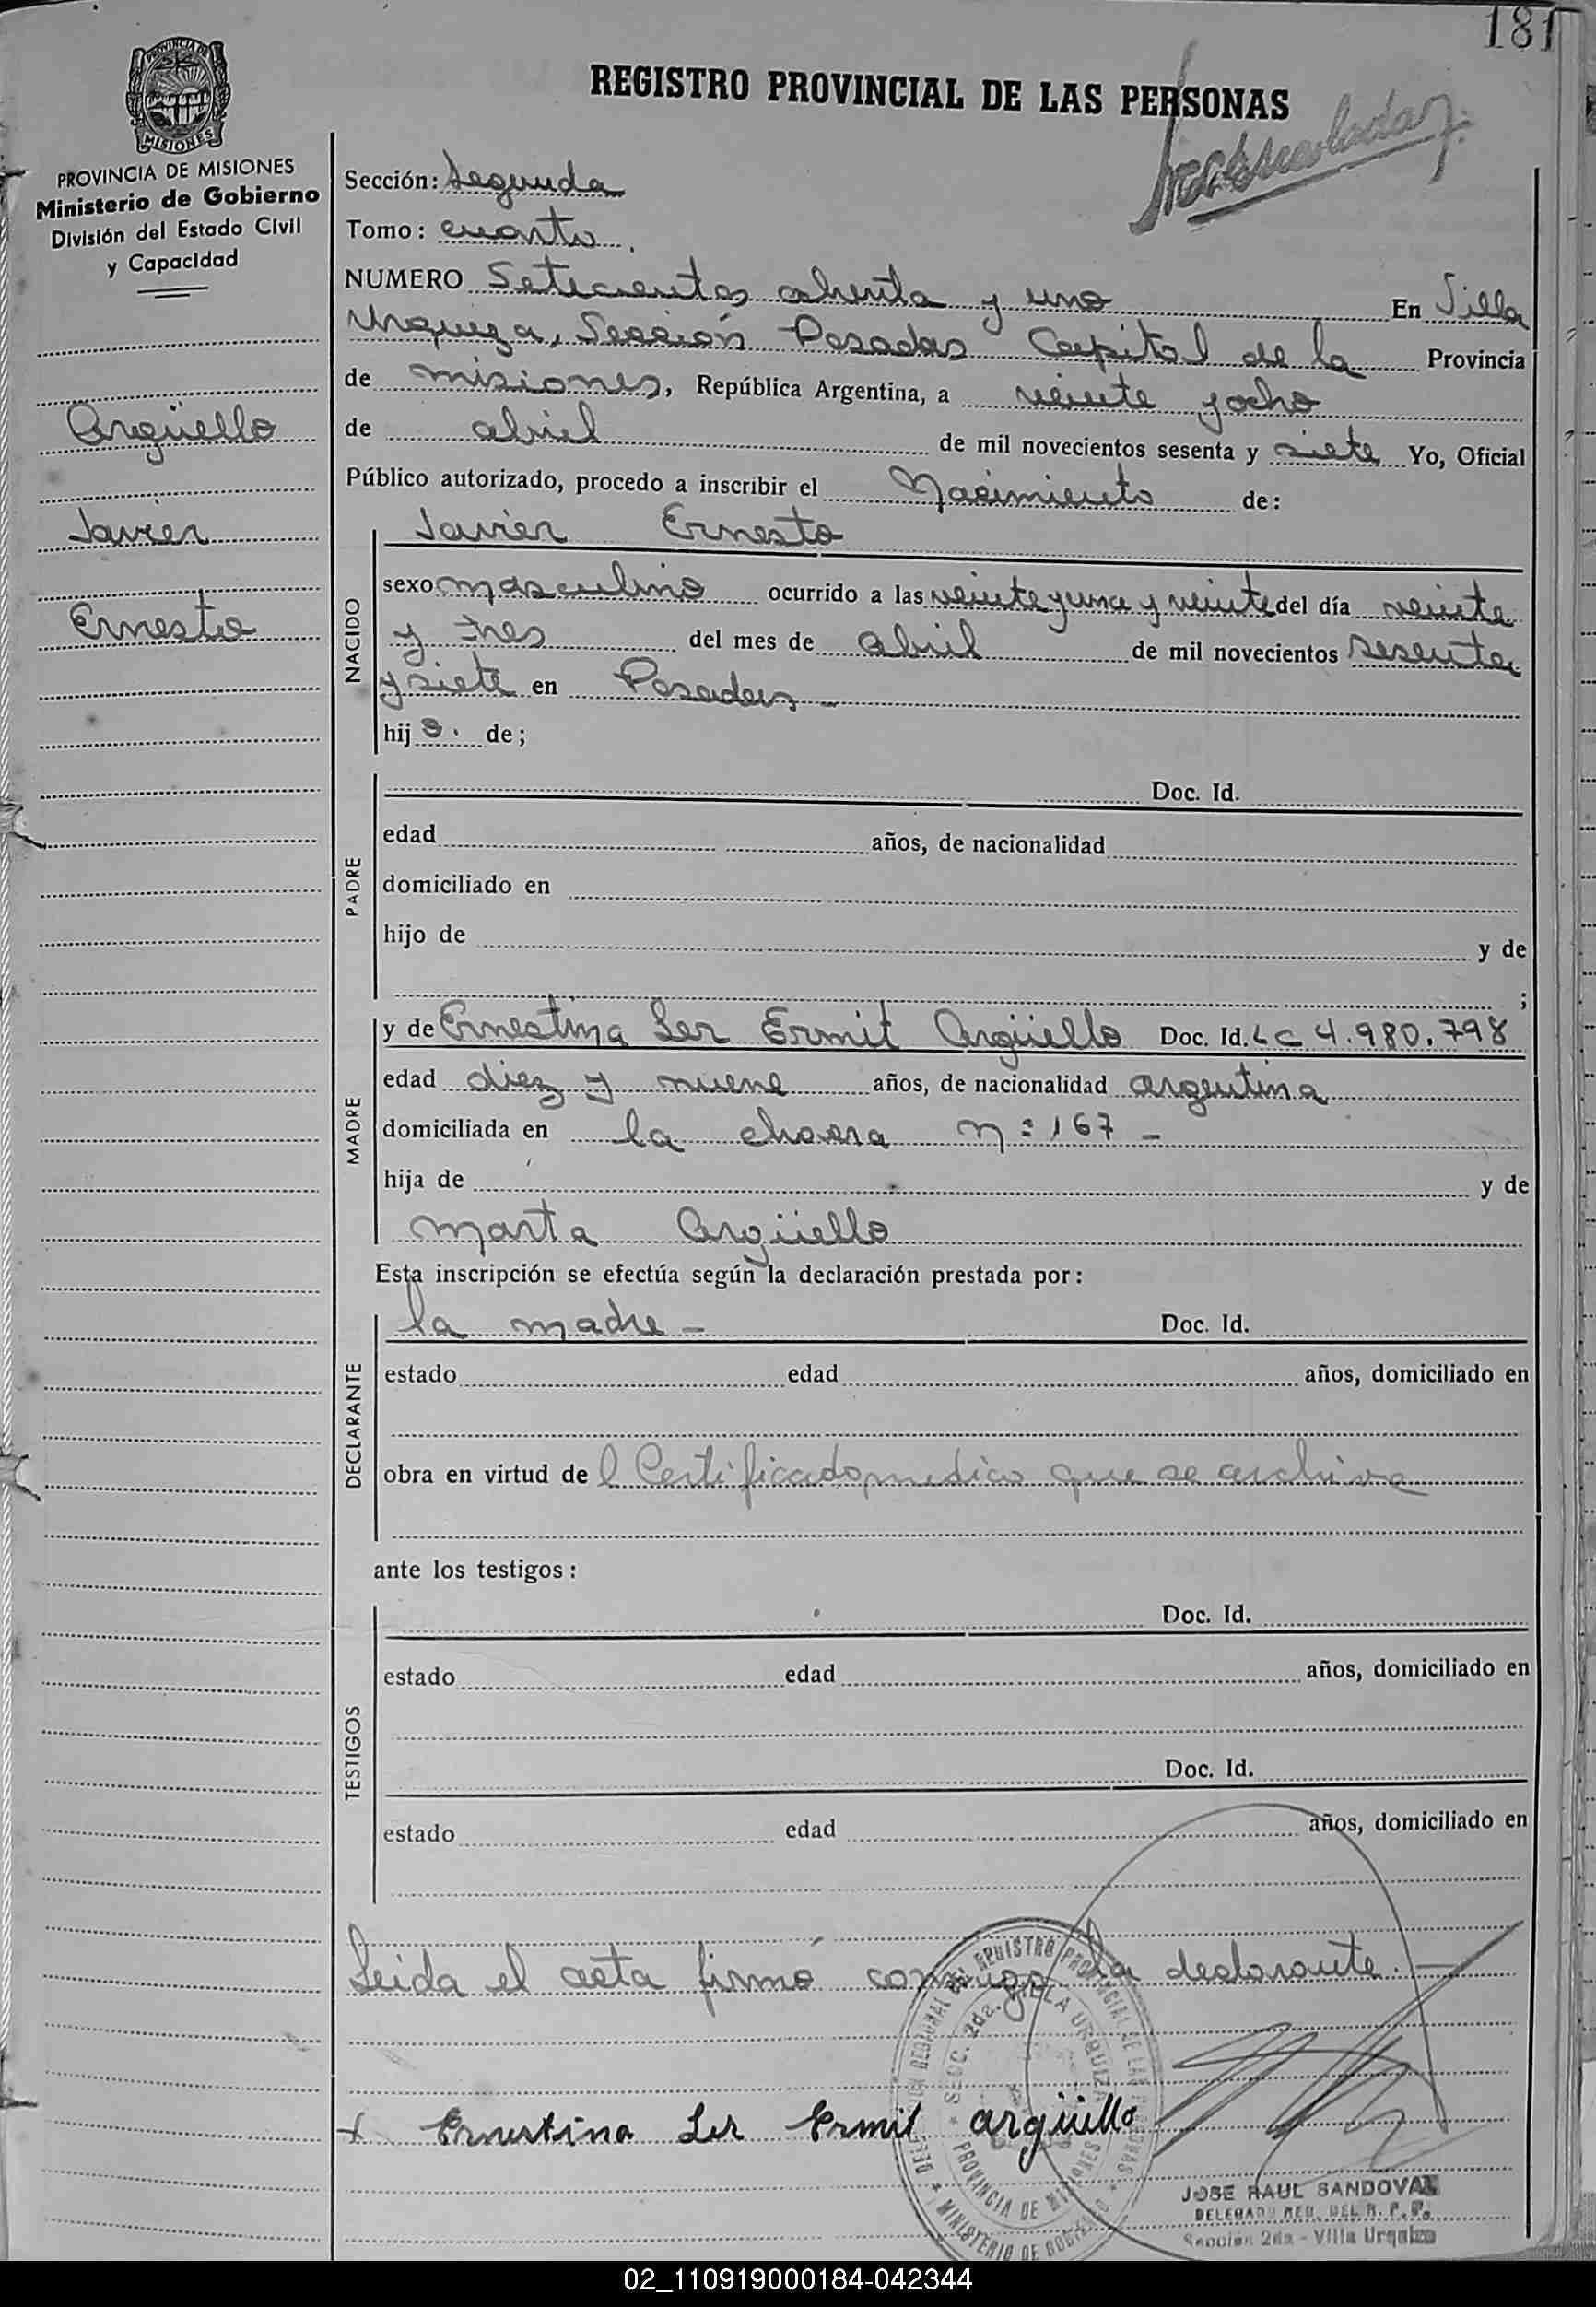 181
REGISTRO PROVINCIAL DE LAS PERSONAS
PROVINCIA DE
MISIONES
PROVINCIA DE MISIONES
Ministerio de Gobierno
División del Estado Civil
y Capacidad
Argüello
Javier
Ernesto
Sección: Segunda
Tomo: cuarto.
NUMERO Setecientos ochenta y uno En Villa
Urquiza, Sección Posadas Capital de la Provincia
de misiones, República Argentina, a veinte y ocho
de abril de mil novecientos sesenta y siete Yo, Oficial
Público autorizado, procedo a inscribir el Nacimiento de:
Javier Ernesto
NACIDO
sexo masculino ocurrido a las veinte y una y veinte del día veinte
y tres del mes de abril de mil novecientos sesenta
y siete en Posadas -
hijo. de;
PADRE
Doc. Id.
edad años, de nacionalidad
domiciliado en
hijo de y de
;
MADRE
y de Ernestina Ler Ermit Argüello Doc. Id. LC 4.980.798
edad diez y nueve años, de nacionalidad argentina
domiciliada en la chacra n: 167 -
hija de y de
Marta Argüello
Esta inscripción se efectúa según la declaración prestada por:
DECLARANTE
la madre - Doc. Id.
estado edad años, domiciliado en
obra en virtud del Certificado medico que se archiva
ante los testigos:
TESTIGOS
Doc. Id.
estado edad años, domiciliado en
Doc. Id.
estado edad años, domiciliado en
Leida el acta firmó conmigo la declarante. -
Ernestina Ler Ermil argüello
DELEGACION REGIONAL DEL REGISTRO PROVINCIAL DE LAS PERSONAS
SECC. 2da. VILLA URQUIZA
PROVINCIA DE MISIONES
MINISTERIO DE GOBIERNO
JOSE RAUL SANDOVAL
DELEGADO REG. DEL R. P. P.
Sección 2da - Villa Urquiza
02_110919000184-042344